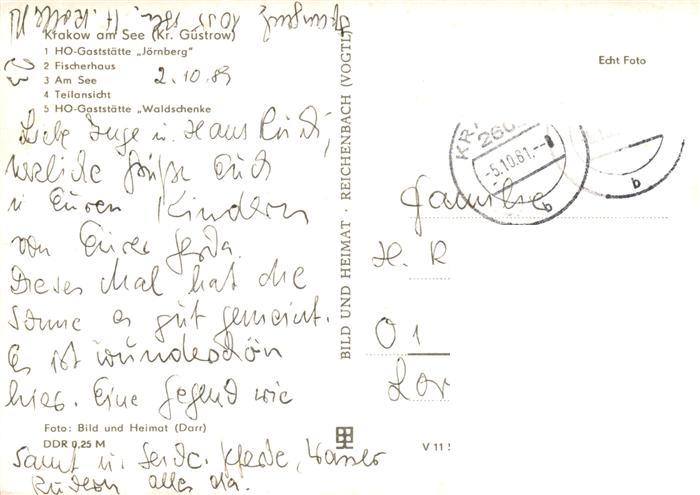 Krakow am See (Kr. Güstrow)
1 HO-Gaststätte „Jörnberg"
2 Fischerhaus
3 Am See
4 Teilansicht
5 HO-Gaststätte „Waldschenke
2.10.89
Liebe Inge u. Hans Rudi,
herzliche Grüße Euch
u Euren Kindern
von Eurer Gerda.
Dieses Mal hat die
Sonne es gut gemeint.
Es ist wunderschön
hier. Eine Gegend wie
Samt u. Seide. Pferde, Wasser
Rudern alles da.
Foto: Bild und Heimat (Darr)
DDR 0,25 M
BILD UND HEIMAT · REICHENBACH (VOGTL)
V 11
Echt Foto
KR
260
-5.10.81.--8
b
b
Familie
H. R
O 1